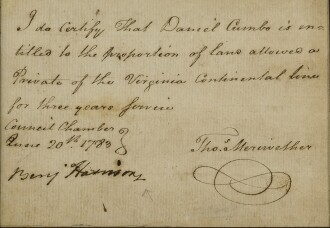 I do Certify That Daniel Cumbo is en-
titled to the proportion of land allowed a
Private of the Virginia Continental line
for three years service
Council Chamber }
June 20th 1783
Thos. Meriwether
Benj Harrison